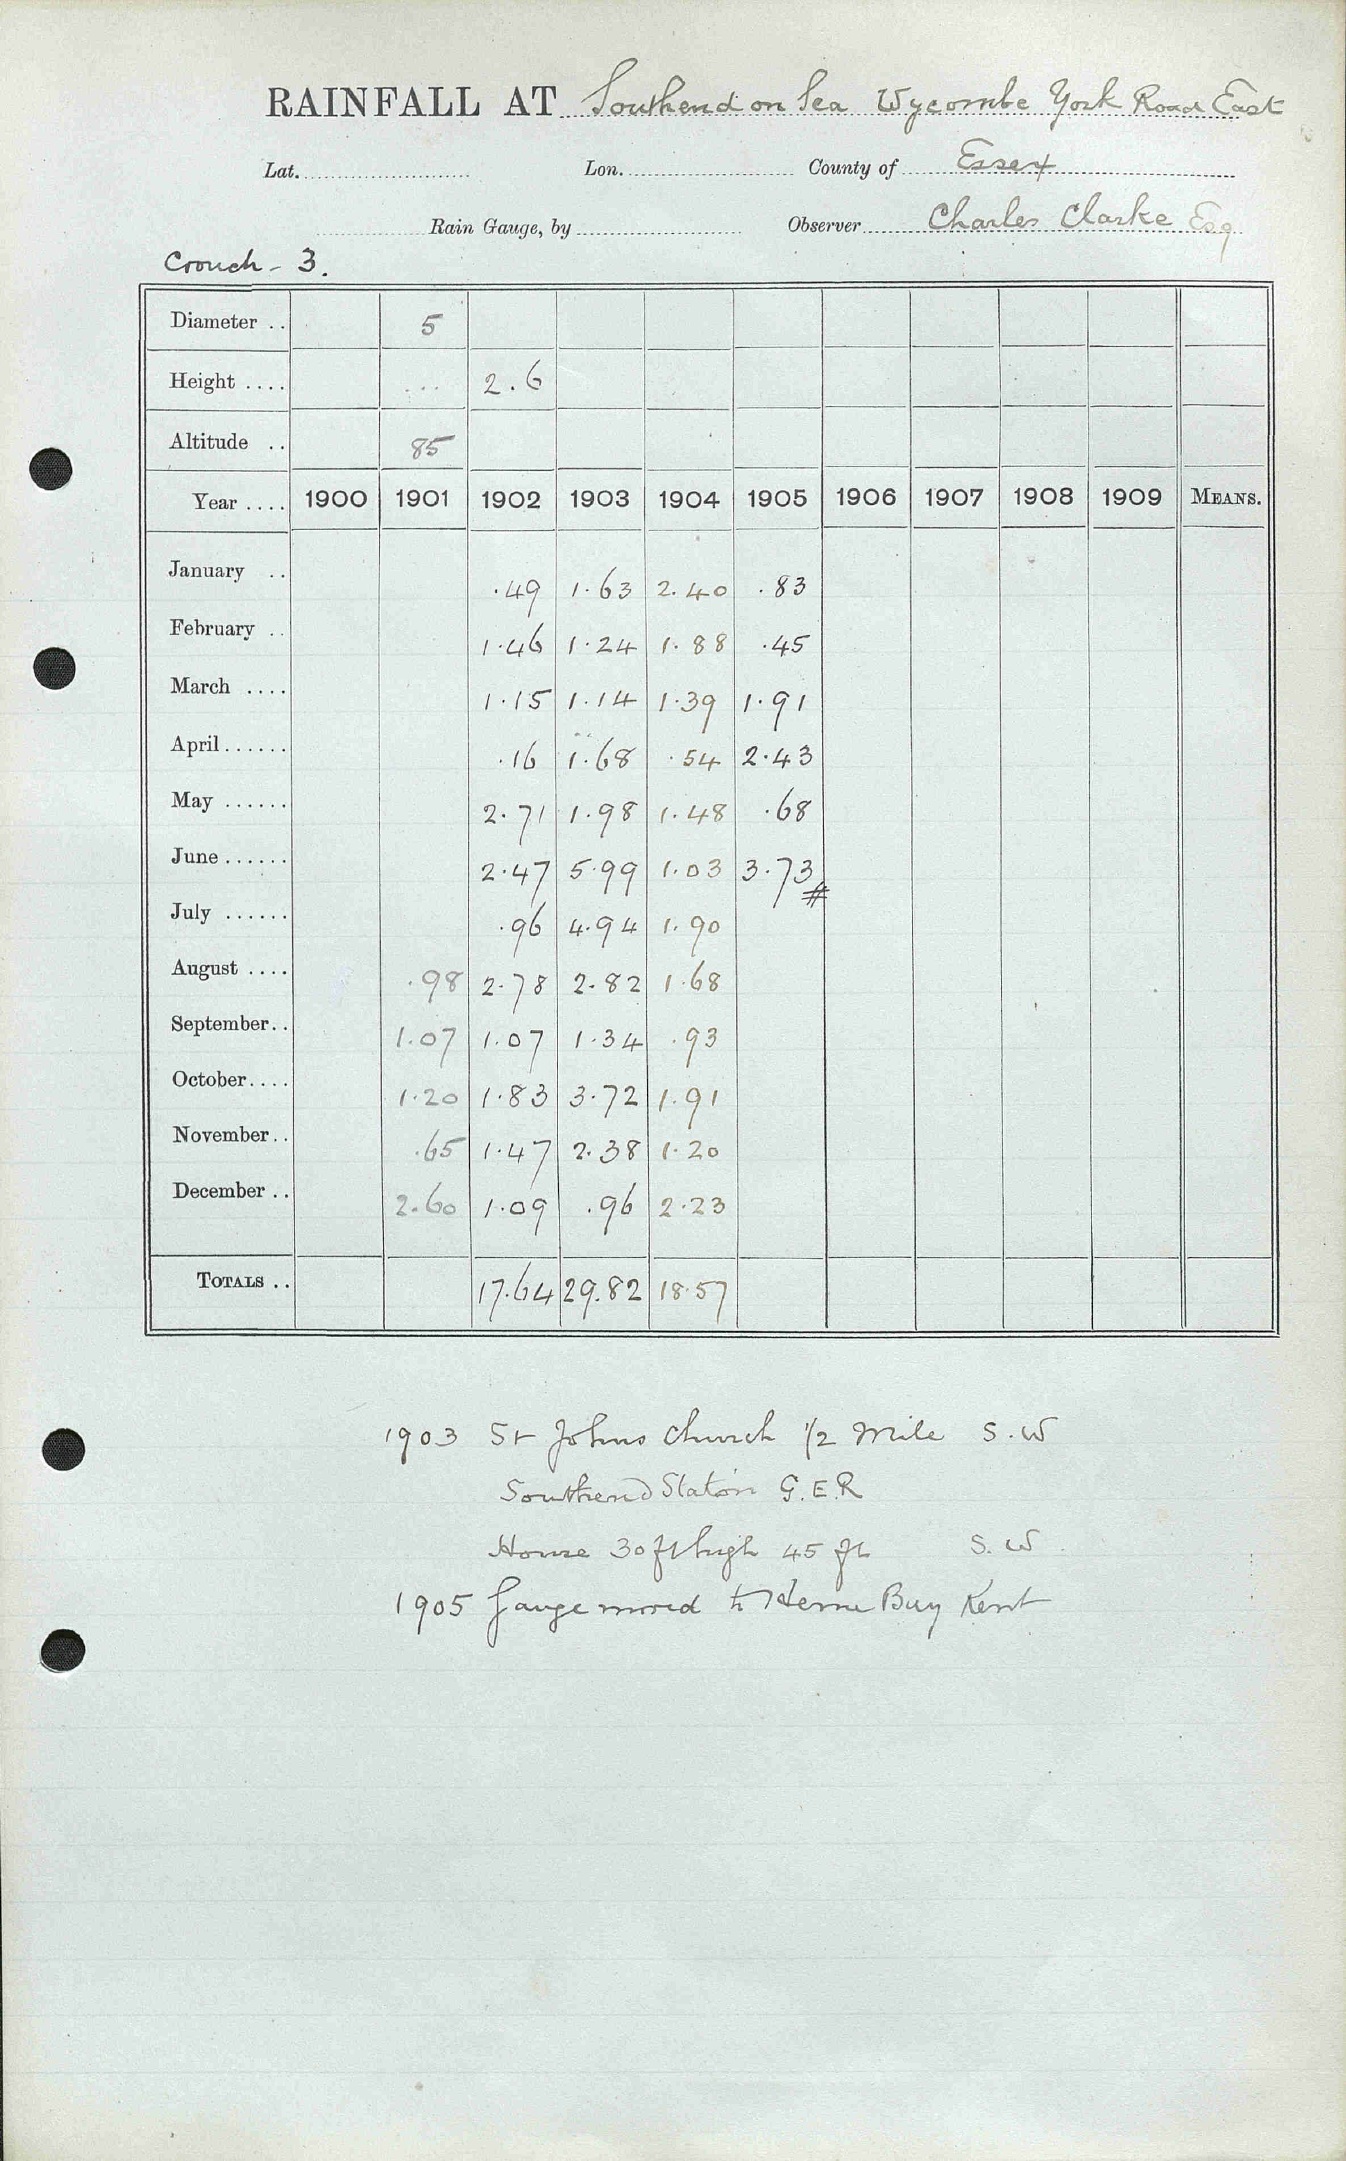 RAINFALL AT Southend on Sea Wycombe York Road East
Lat. Lon. County of Essex
Rain Gauge, by Observer Charles Clarke Esq
Crouch - 3.
Diameter .. 5
Height .... ... 2.6
Altitude .. 85
Year .... 1900 1901 1902 1903 1904 1905 1906 1907 1908 1909 MEANS.
January .. .49 1.63 2.40 .83
February .. 1.46 1.24 1.88 .45
March .... 1.15 1.14 1.39 1.91
April ...... .16 1.68 .54 2.43
May ...... 2.71 1.98 1.48 .68
June ...... 2.47 5.99 1.03 3.73 #
July ...... .96 4.94 1.90
August .... .98 2.78 2.82 1.68
September .. 1.07 1.07 1.34 .93
October .... 1.20 1.83 3.72 1.91
November .. .65 1.47 2.38 1.20
December .. 2.60 1.09 .96 2.23
TOTALS .. 17.64 29.82 18.57
1903 St Johns Church 1/2 Mile S.W
Southend Station G.E.R
House 30 ft high 45 ft S.W
1905 Gauge moved to Herne Bay Kent